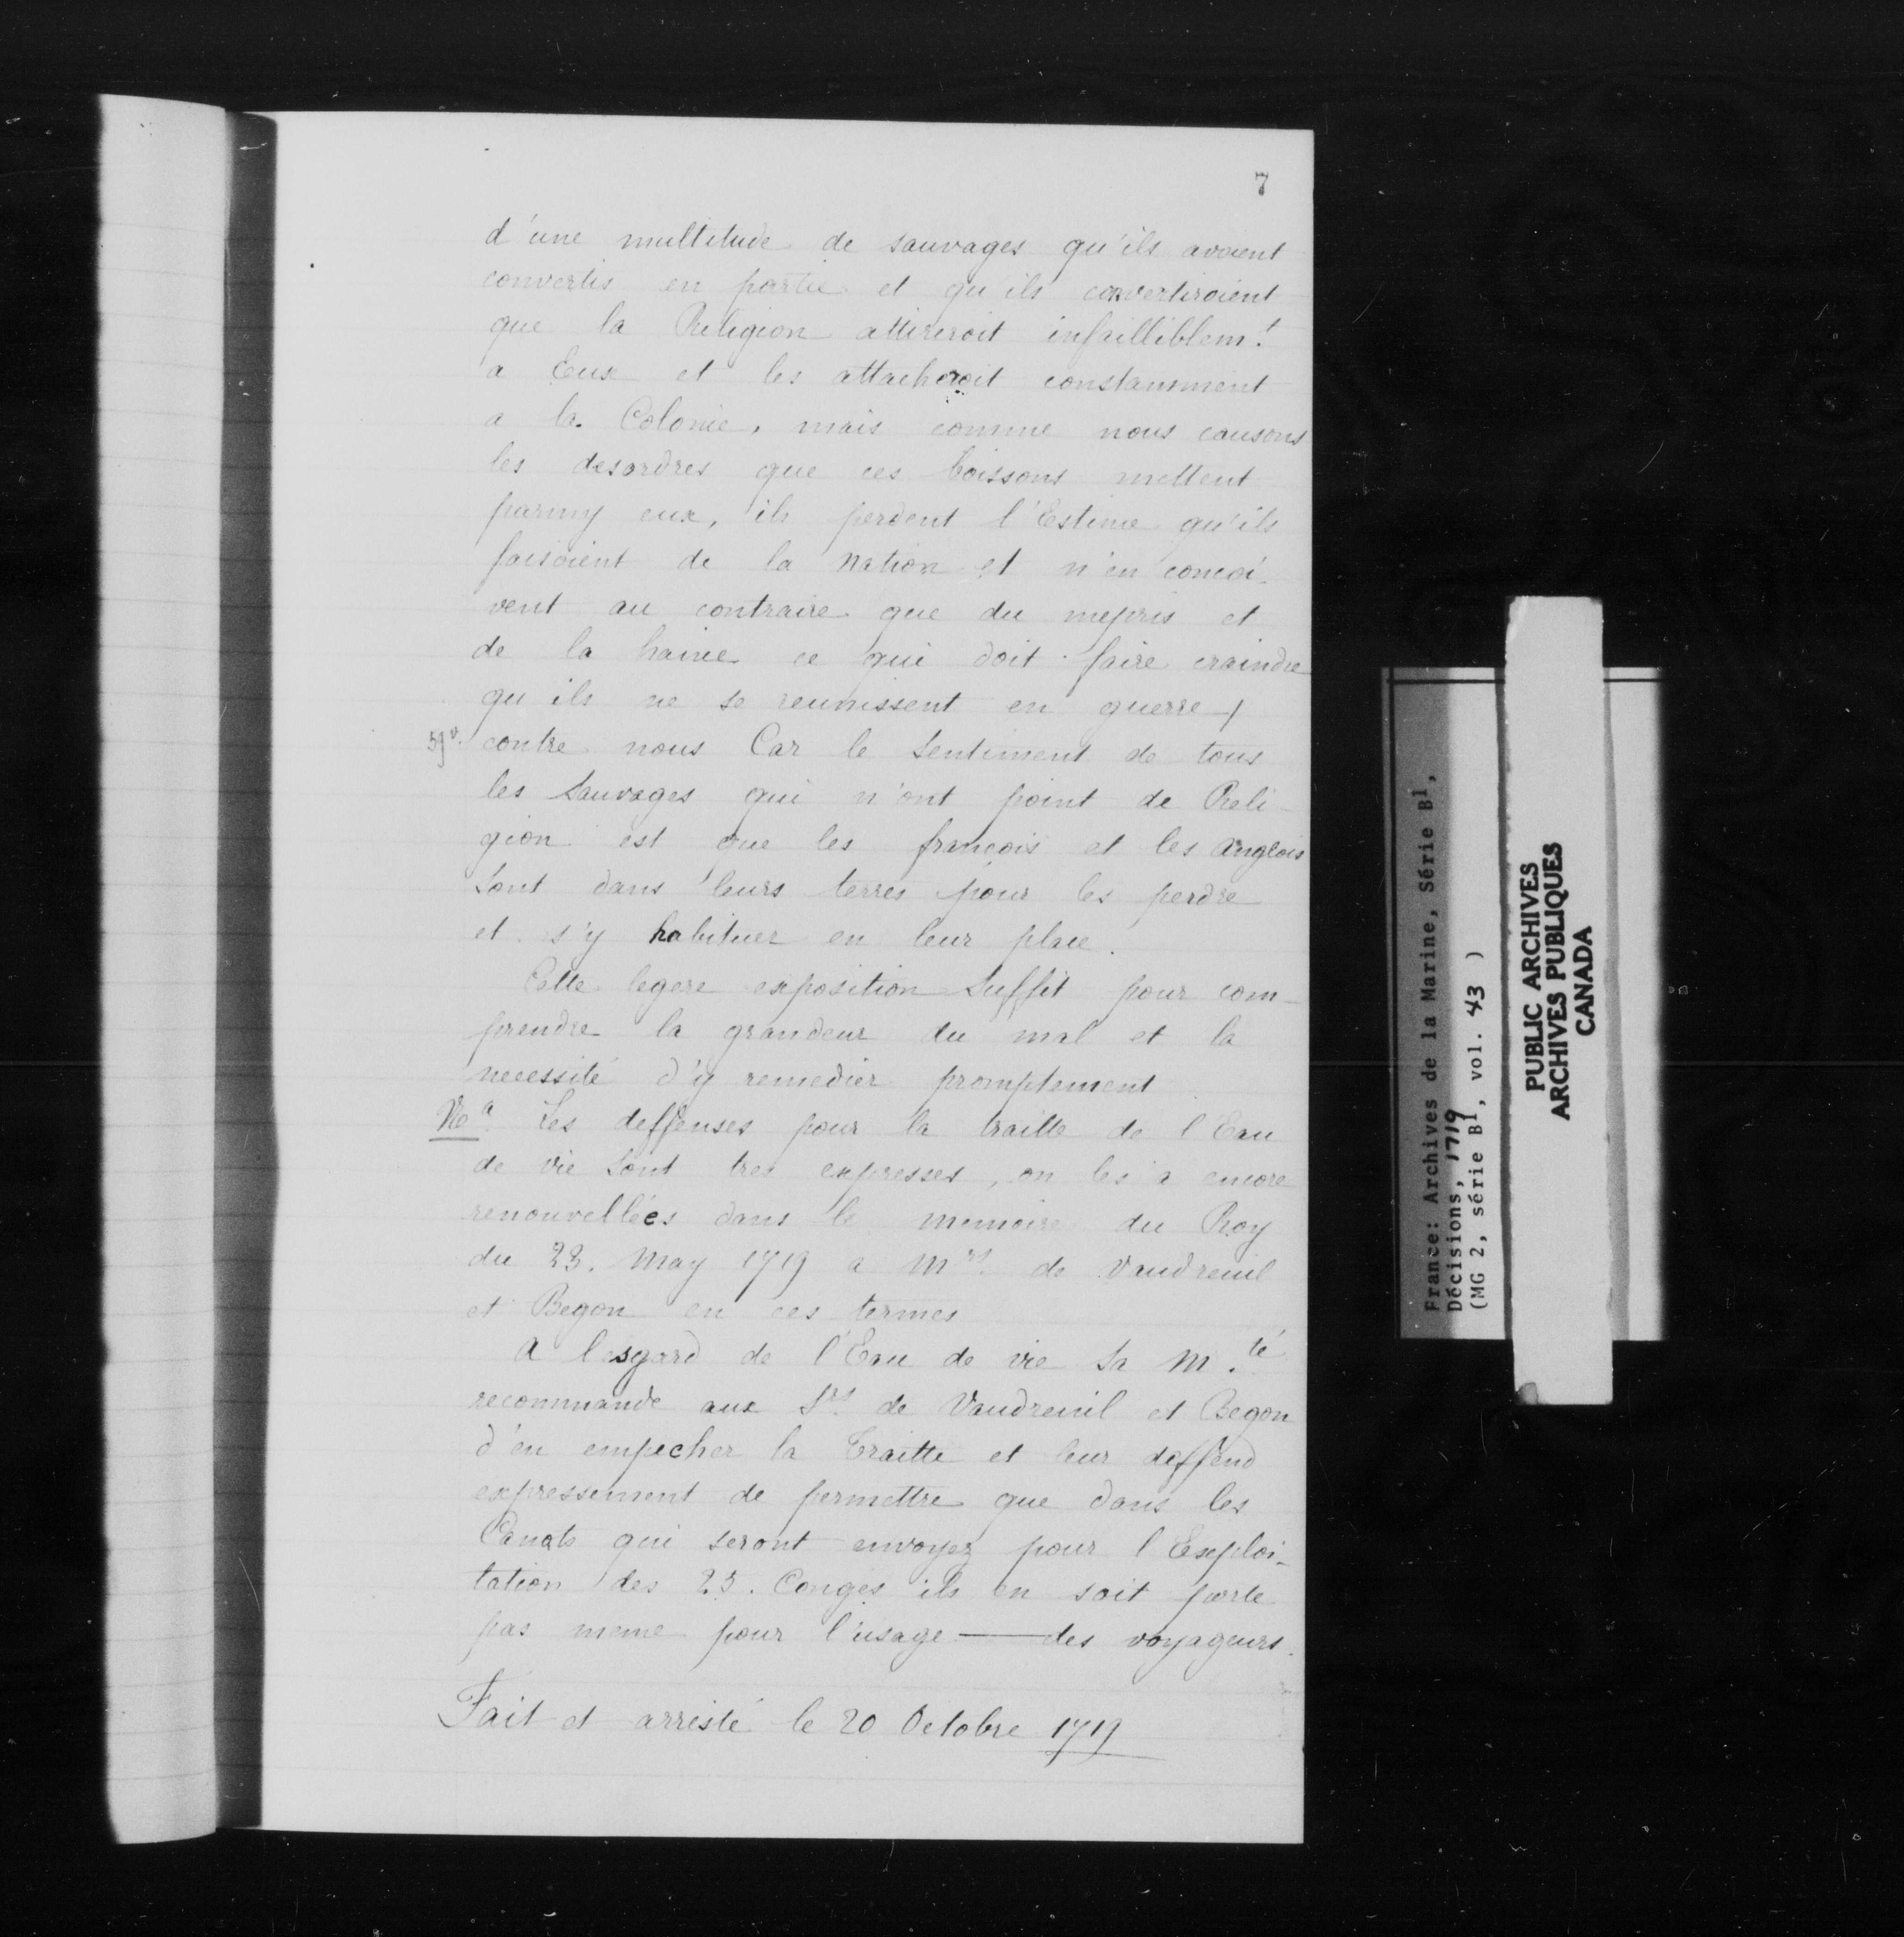 7
d'une multitude de sauvages qu'ils avoient
convertis en partie et qu'ils convertiroient
que la Religion attireroit infailliblem.t
a Eux et les attacheroit constamment
a la Colonie, mais comme nous causons
les desordres que ces boissons mettent
parmy eux, ils perdent l'Estime qu'ils
faisoient de la Nation et n'en concoi-
vent au contraire que du mepris et
de la haine ce qui doit faire craindre
qu'ils ne se reunissent en guerre /
59 v. contre nous Car le Sentiment de tous
les Sauvages qui n'ont point de Reli-
gion est que les françois et les Anglois
Sont dans leurs terres pour les perdre
et s'y habituer en leur place.
Cette legere exposition Suffit pour com-
prendre la grandeur du mal et la
necessité d'y remedier promptement
Les deffenses pour la traitte de l'Eau
de vie Sont tres expresses, on les a encore
renouvellées dans le memoire du Roy
du 23. May 1719 a Mrs. de Vaudreuil
et Begon en ces termes
A l'esgard de l'Eau de vie Sa M.té
recommande aux Srs. de Vaudreuil et Begon
d'en empecher la Traitte et leur deffend
expressement de permettre que dans les
Canots qui seront envoyez pour l'Exploi-
tation des 25. Congés ils en soit porte
pas meme pour l'usage — des voyageurs.
Fait et arresté le 20 Octobre 1719
France: Archives de la Marine, Série B1,
Décisions, 1719
(MG 2, série B1, vol. 43 )
PUBLIC ARCHIVES
ARCHIVES PUBLIQUES
CANADA